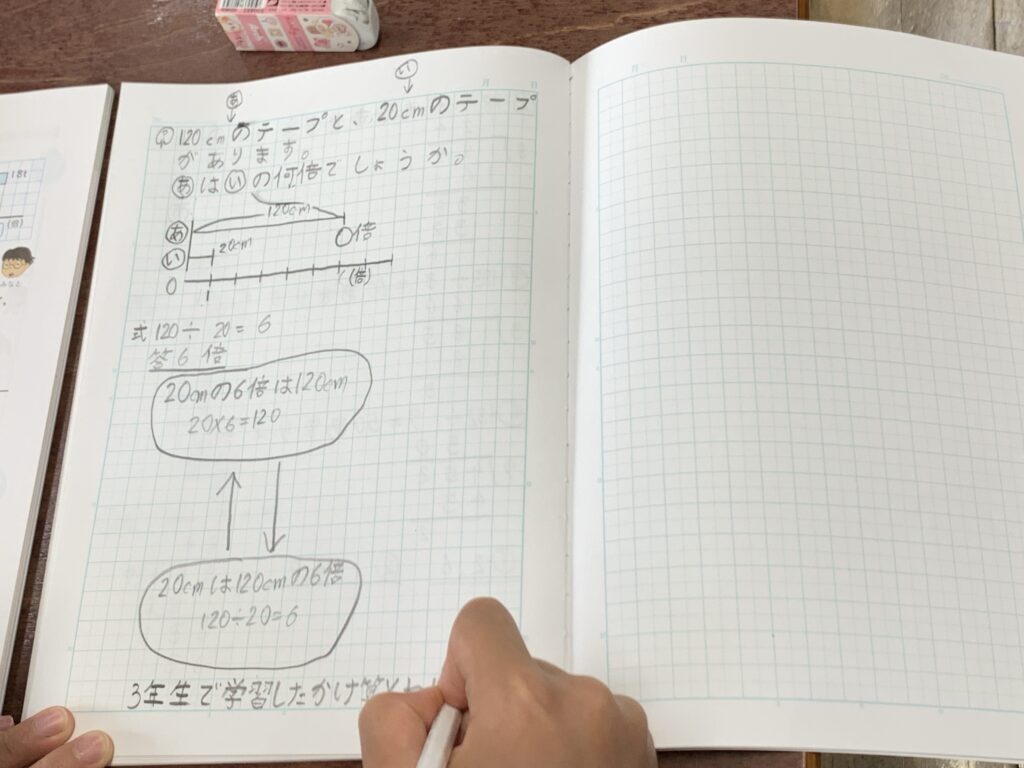 あ
い
120cmのテープと、20cmのテープ
があります。
あはいの何倍でしょうか。
120cm
あ
○倍
い 20cm
0 1 (倍)
式 120÷20=6
答6倍
20cmの6倍は120cm
20×6=120
20cmは120cmの6倍
120÷20=6
3年生で学習したかけ算とわ
18t
(倍)
みなと